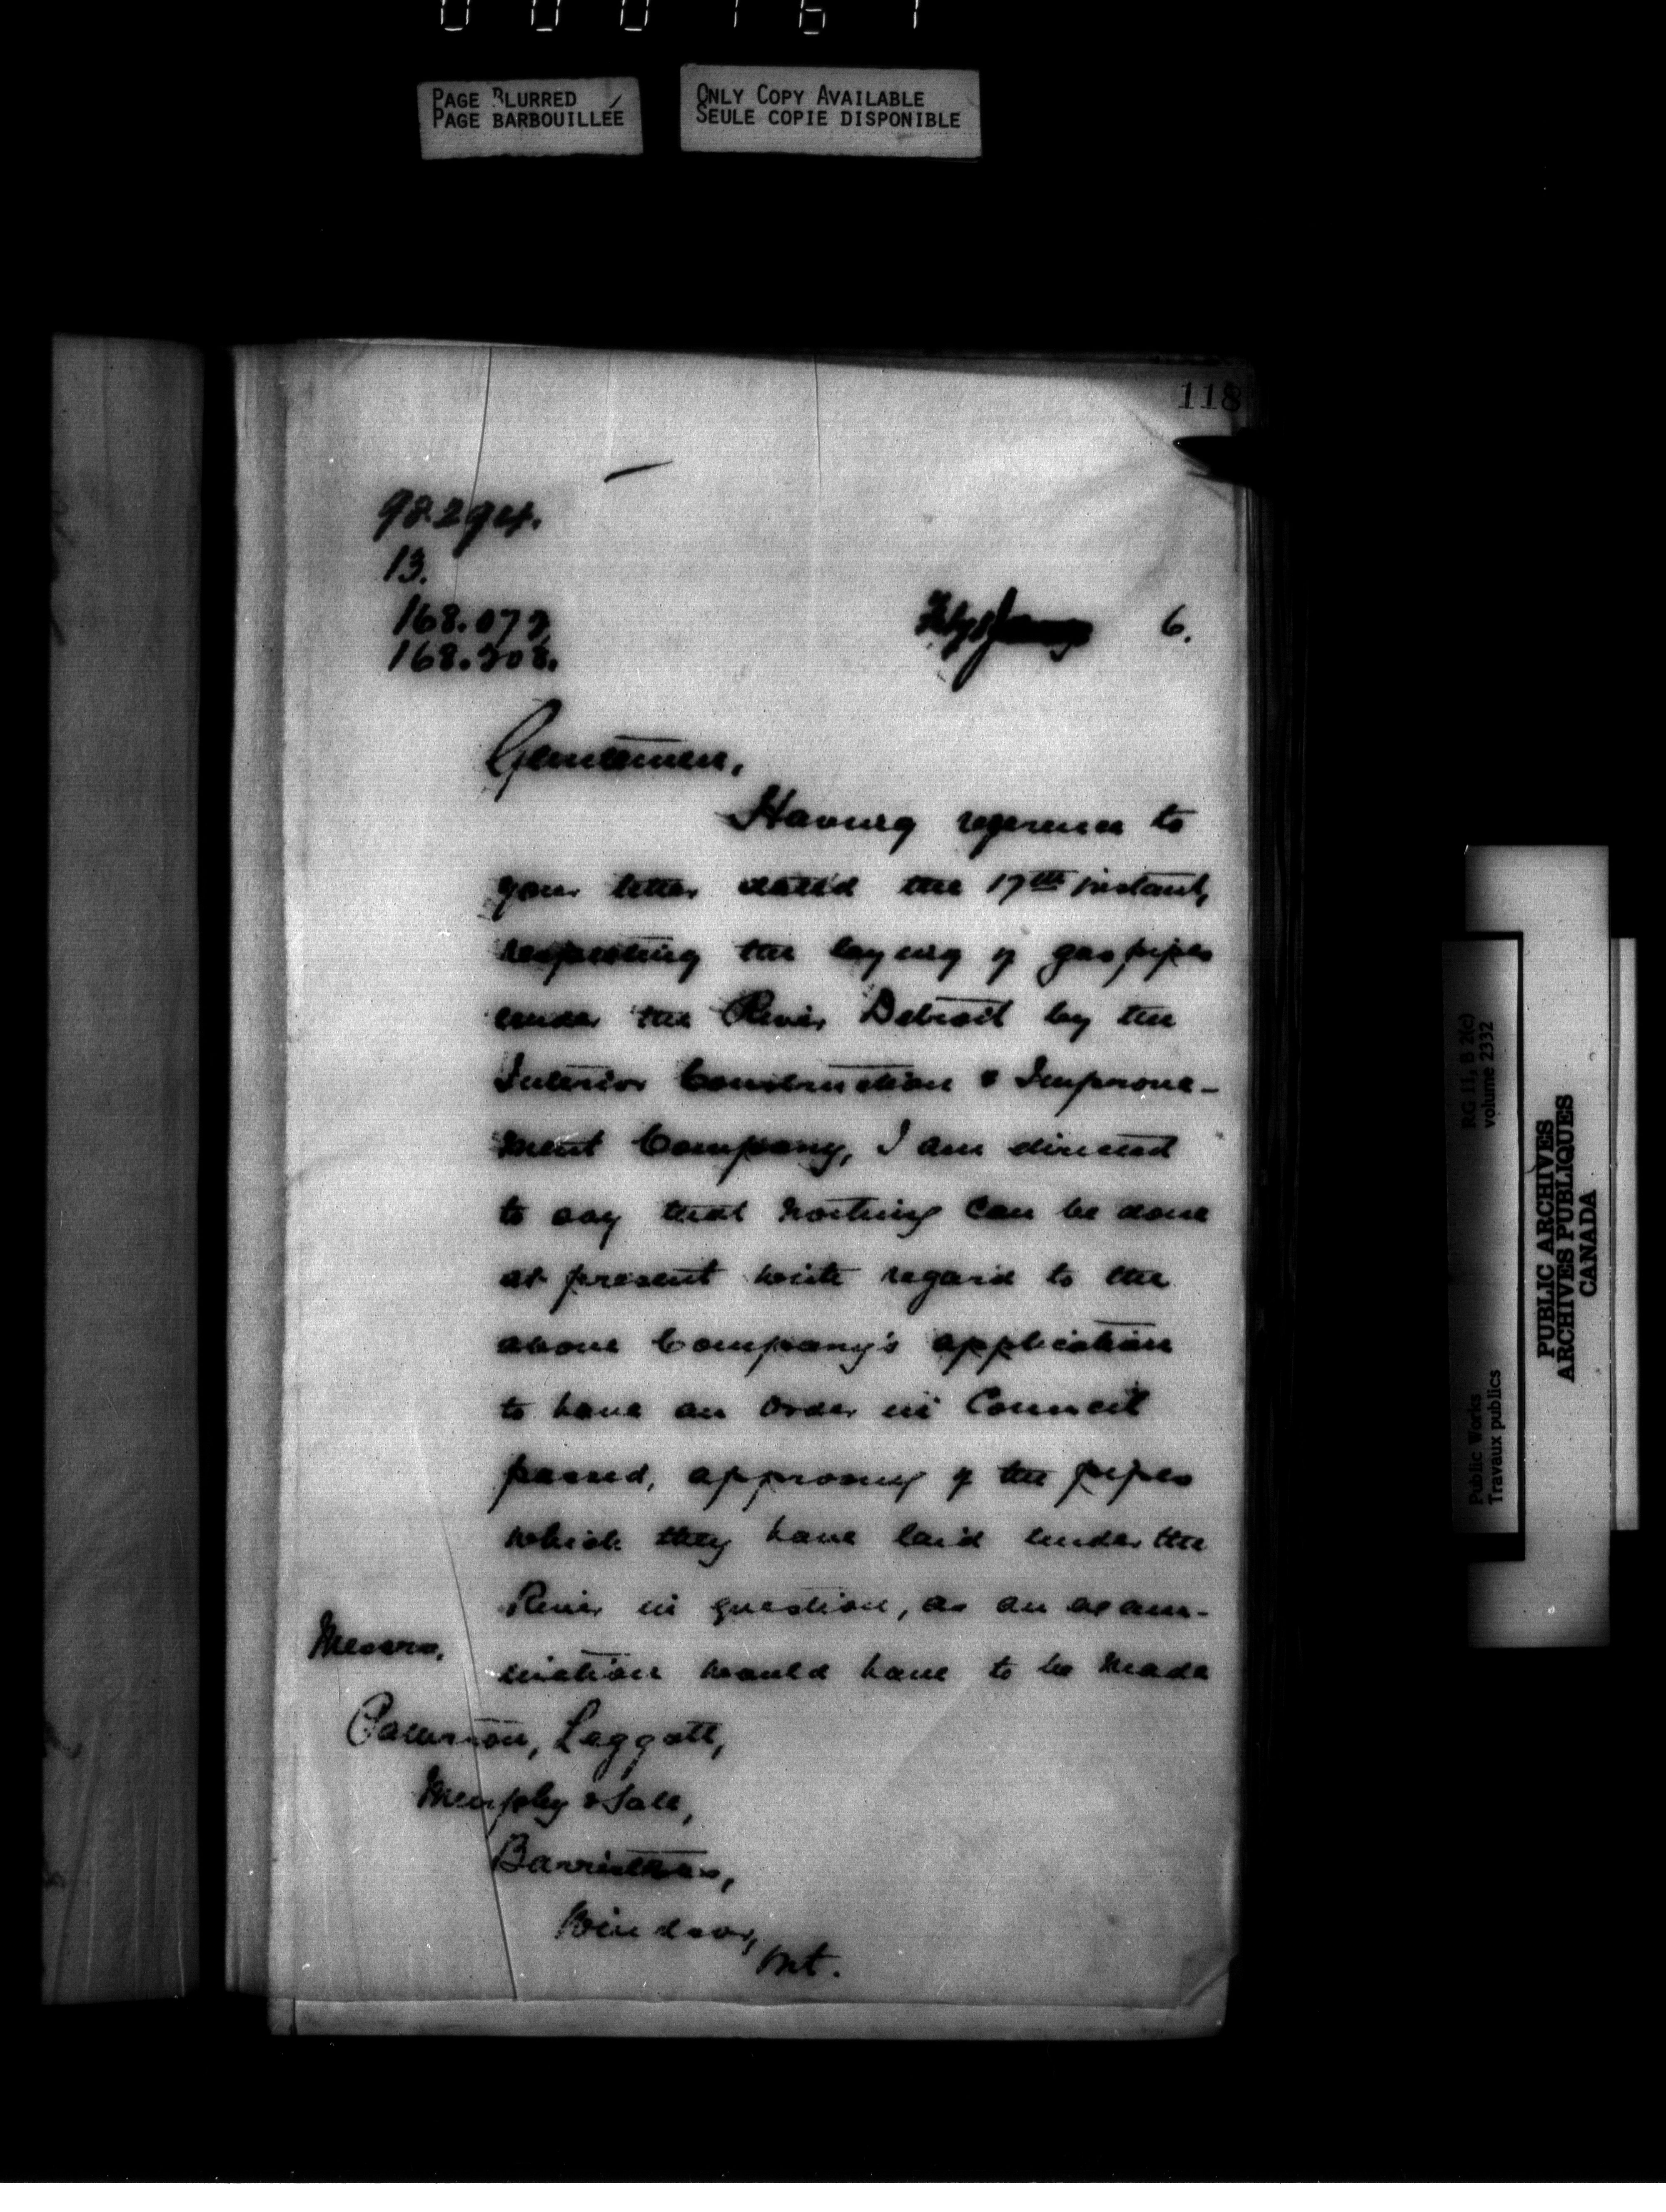 PAGE BLURRED
PAGE BARBOUILLÉE
ONLY COPY AVAILABLE
SEULE COPIE DISPONIBLE
118
98294.
13.
168.079
168.308.
Feby 6.
Gentlemen,
Having reference to
your letter dated the 17th instant,
respecting the laying of gas pipes
under the River Detroit by the
Interior Construction & Improve-
ment Company, I am directed
to say that nothing can be done
at present with regard to the
above Company's application
to have an Order in Council
passed, approving of the pipes
which they have laid under the
River in question, as an exam-
ination would have to be made
Messrs.
Patterson, Leggatt,
Murphy & Sale,
Barristers,
Windsor,
Ont.
RG 11, B 2(c)
volume 2332
Public Works
Travaux publics
PUBLIC ARCHIVES
ARCHIVES PUBLIQUES
CANADA